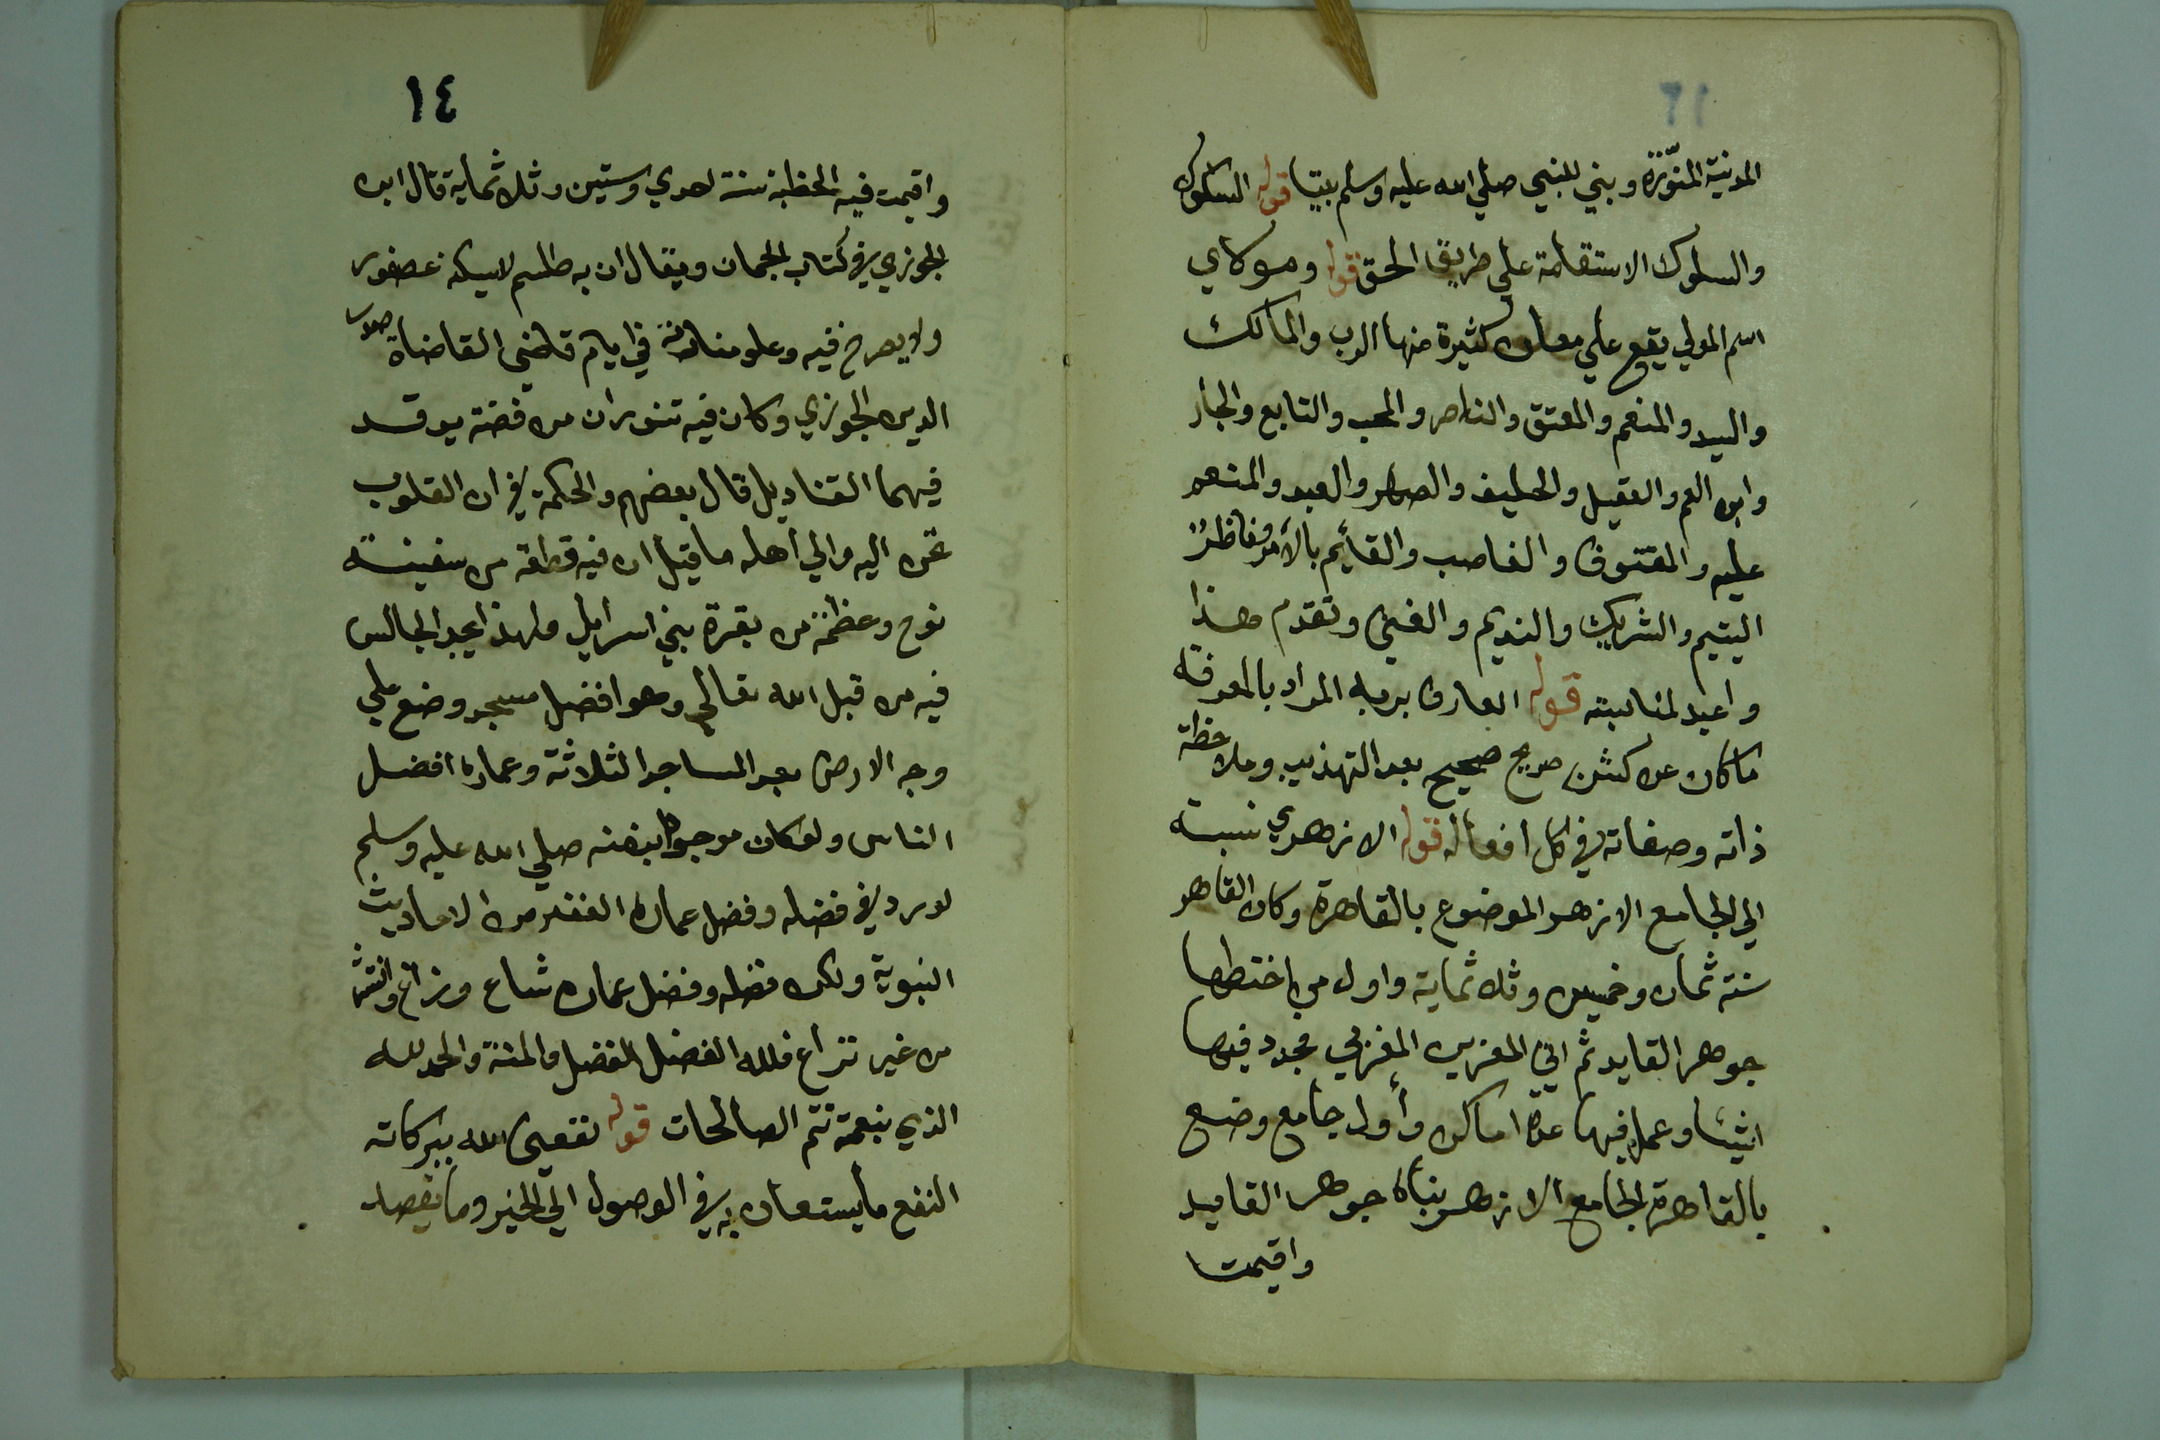 المدنية المنوّرة وبني للنبي صلي الله عليه وسلم بيتا قوله السلوك
والسلوك الاستقامة علي طريق الحق قوله ومولاي
اسم المولي يقع علي معان كثيرة منها الرب والمالك
والسيد والمنعم والمعتق والناصر والمحب والتابع والجار
وابن العم والعقيل والحليف والصهر والعبد والمنعم
عليه والمعتوق والغاصب والقائم بالأمر وناظر
اليتيم والشريك والنديم والغني وتقدم هذا
واعيد لمناسبته قوله العارف بربه المراد بالمعرفة
ما كان عن كشف صريح صحيح بعد التهذيب وملاحظة
ذاته وصفاته في كل افعاله قوله الازهري نسبة
الي الجامع الازهر الموضوع بالقاهرة وكان القاهر
سنة ثمان وخمسين وثلاثماية واول من اختطها
جوهر القايد ثم اتي المعز بن المغربي مجدد فيها
اشيئا وعمل فيها عدة اماكن وأول جامع وضع
بالقاهرة الجامع الازهر بناه جوهر القايد
واقيمت
١٤
واقيمت فيه الخطبة سنة احدي وستين وثلاثماية قال ابن
الجوزي في كتاب الجمان ويقال ان به طلسم لايسكنه عصفور
ولا يفرخ فيه وعلو منارته في ايام قاضي القاضاة صلاح
الدين الجوزي وكان فيه تنوران من فضة يوقد
فيهما القناديل قال بعضهم والحكمة في ان القلوب
تحن اليه والي اهله ما قيل ان فيه قطعة من سفينة
نوح وعظمة من بقرة بني اسرايل ولهذا يجد الجالس
فيه من قبل الله تعالي وهو افضل مسجد وضع علي
وجه الارض بعد المساجد الثلاثة وعماره افضل
الناس ولو كان موجودا بزمنه صلي الله عليه وسلم
لورد في فضله وفضل عماره الغفير من الاحاديث
النبوية ولكن فضله وفضل عماره شاع وذاع وانتشر
من غير نزاع فلله الفضل المفضل والمنة والحمد لله
الذي بنعمته تتم الصالحات قوله نفعني الله ببركاته
النفع ما يستعان به في الوصول الي الخير وما يقصد